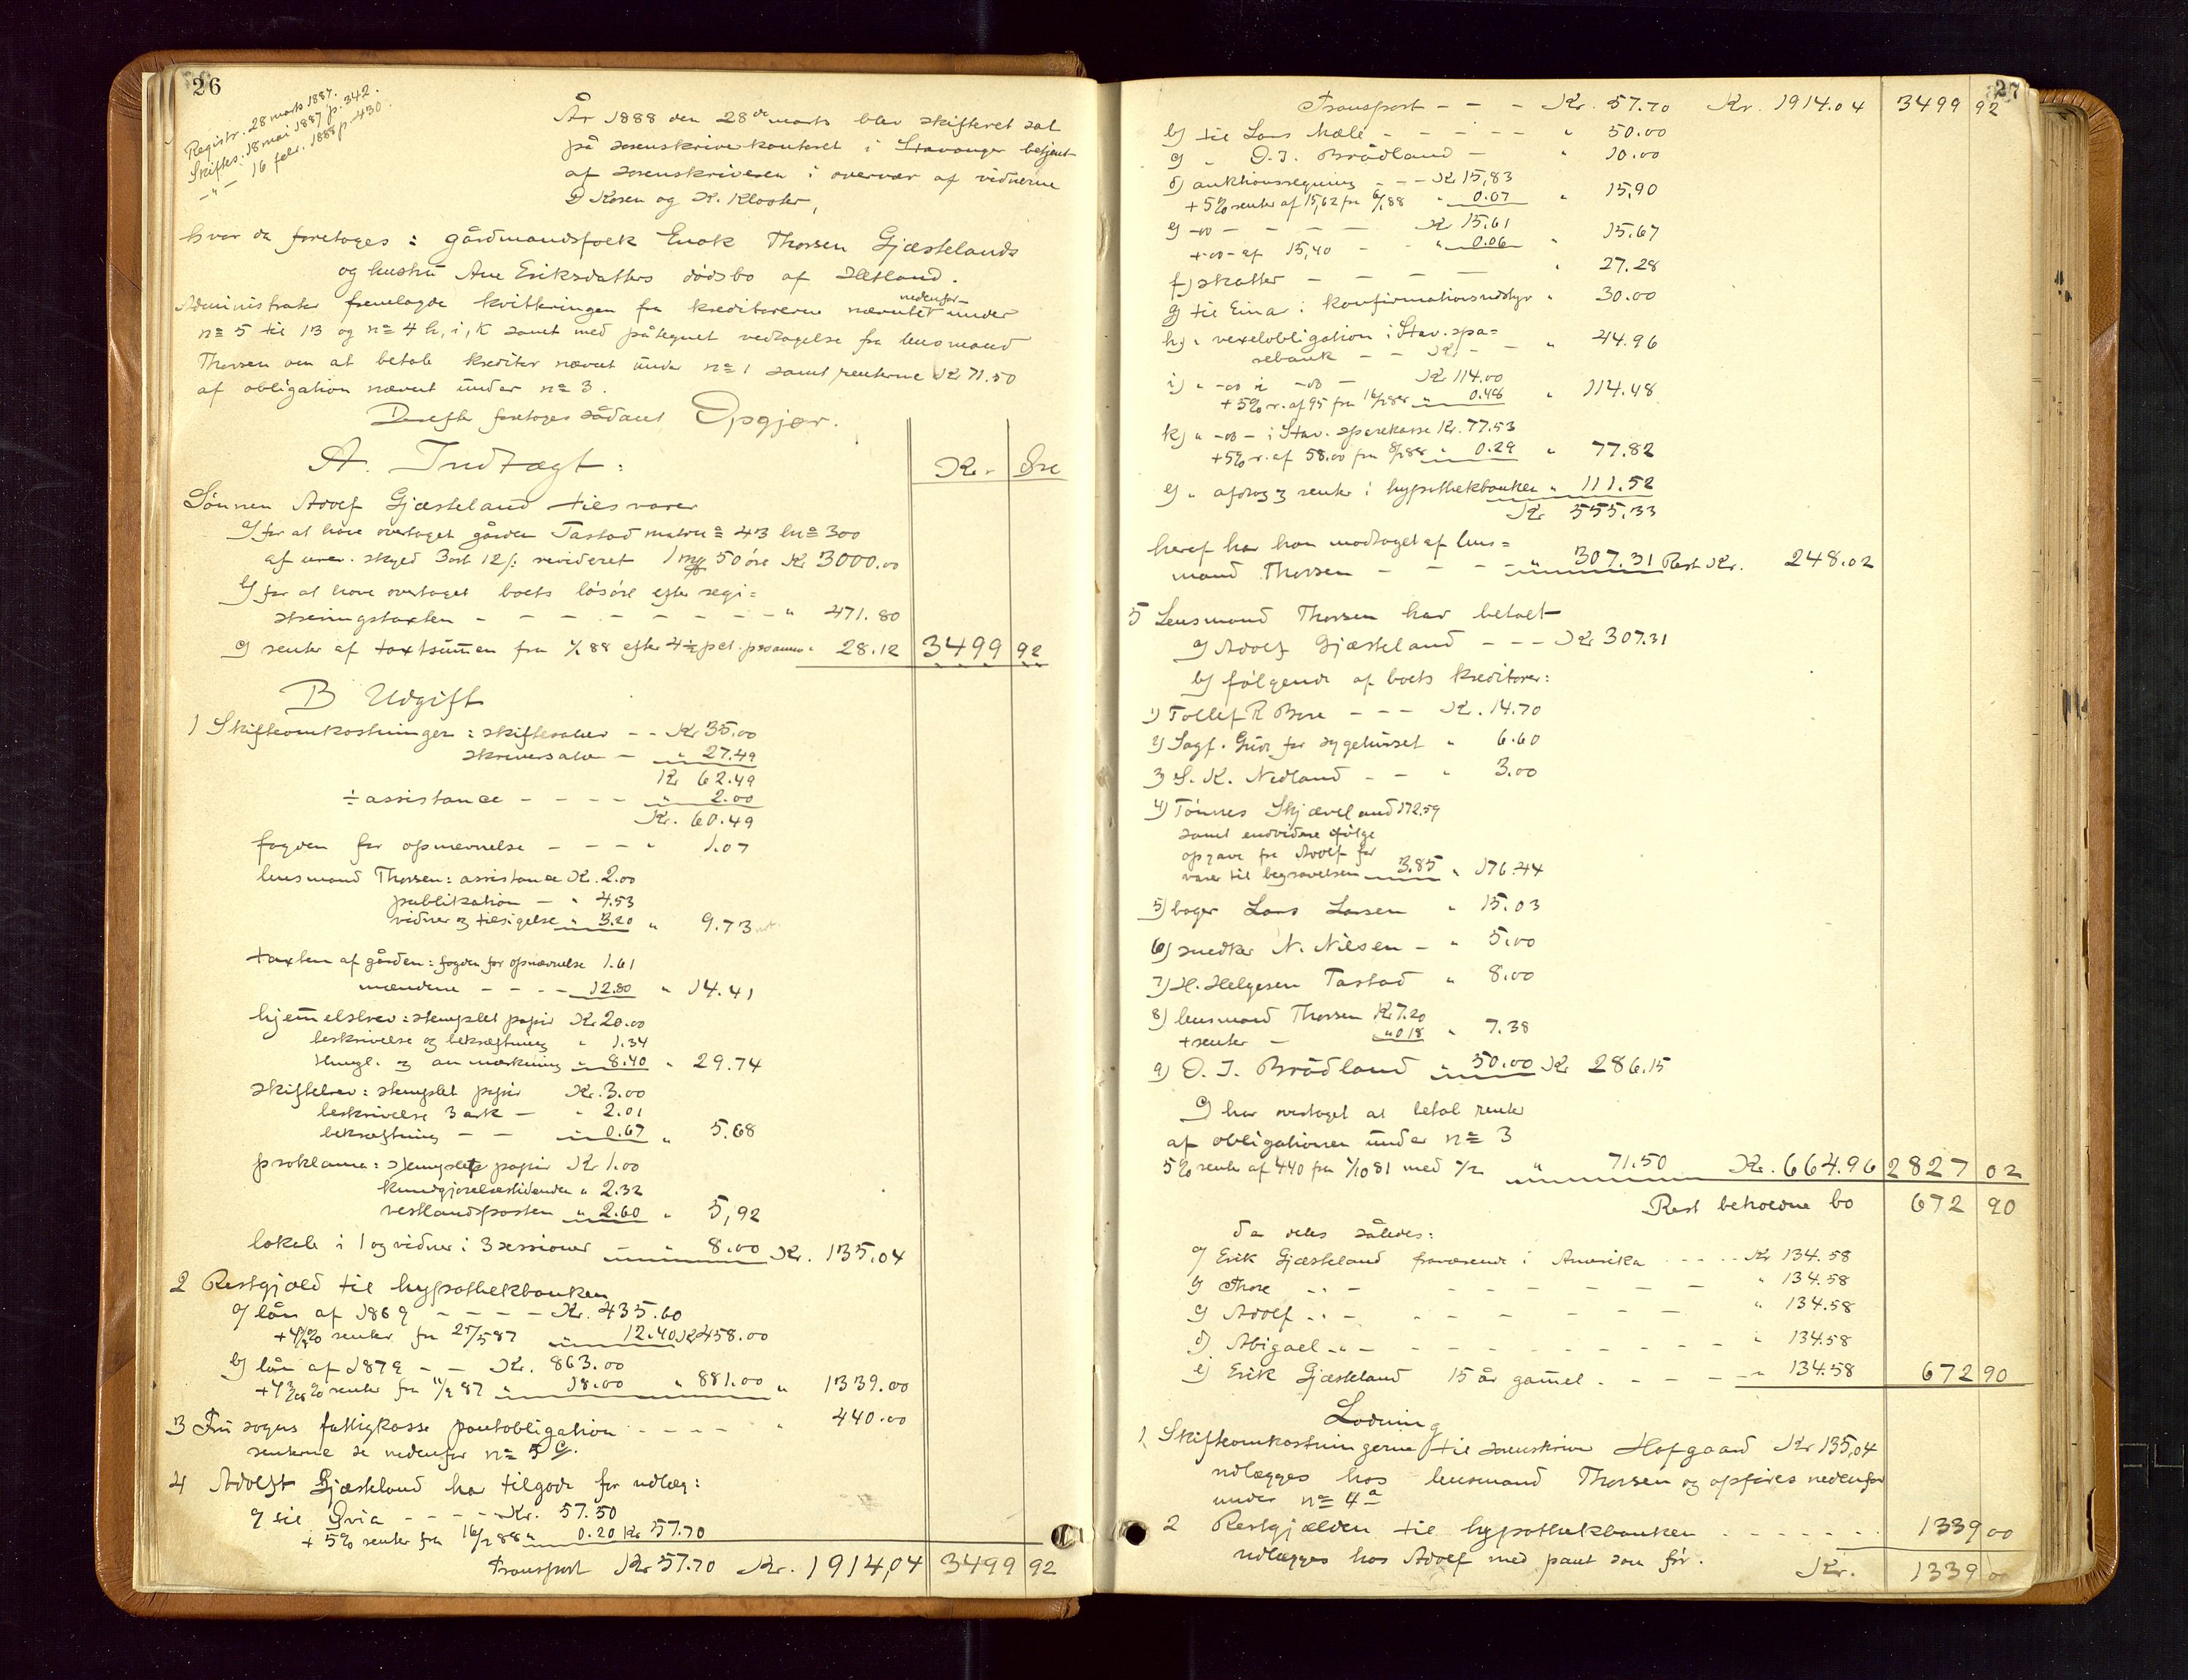 26
Registr. 28 marts 1887.
Skiftes. 18 mai 1887 p. 342.
-"- 16 febr. 1888 p. 430
År 1888 den 28de marts blev skifteret sat
på sorenskriverkontoret i Stavanger betjent
af sorenskriveren i overvær af vidnerne
D Kosen og K. Kloster,
hvor da foretoges: gårdmandsfolk Enok Thorsen Gjæstelands
og hustru Ane Eriksdatters dødsbo af Hetland.
Administrator fremlagde kvitteringen fra kreditorerne nævntet nedenfor under
no 5 til 13 og no 4 h, i, k samt med påtegnet vedtagelse fra lensmand
Thorsen om at betale kreditor nævnt under no 1 samt renterne Kr 71.50
af obligation nævnt under no 3.
Derefter foretoges sådant Opgjør.
A. Indtægt: Kr. Øre
Sønnen Adolf Gjæsteland tilsvarer
a) for at have overtaget gården Tastad matrno 43 lno 300
af urev. skyld 3 ort 12 s. revideret 1 mrk 50 øre Kr 3000.00
b) for at have overtaget boets løsøre efter regi=
streringstaxten - - - - - - - " 471.80
c) renter af taxtsummen fra 1/1 88 efter 4½ pct. pro anno " 28.12 3499 92
B Udgift
1 Skifteomkostninger: skiftesalær - - Kr 35.00
skriversalær - " 27.49
Kr 62.49
÷ assistance - - - - " 2.00
Kr. 60.49
fogden for opnævnelse - - - " 1.07
lensmand Thorsen: assistance Kr. 2.00
publikation - " 4.53
vidner og tilsigelse " 3.20 " 9.73
taxten af gården: fogden for opnævnelse 1.61
mændene - - - - 12.80 " 14.41
hjemmelsbrev: stemplet papir Kr 20.00
beskrivelse og bekræftning " 1.34
thingl. og anmærkning " 8.40 " 29.74
skiftebrev: stemplet papir Kr. 3.00
beskrivelse 3 ark - " 2.01
bekræftning - - " 0.67 " 5.68
proklama: stemplet papir Kr 1.00
kundgjørelsestidende " 2.32
vestlandsposten " 2.60 " 5,92
lokale i 1 og vidner i 3 sessioner - " 8.00 Kr. 135.04
2 Restgjæld til hypothekbanken
a) lån af 1869 - - - - Kr. 435.60
+ 4½% renter fra 25/5 87 " 12.40 Kr 458.00
b) lån af 1879 - - Kr. 863.00
+ renter fra 11/9 87 " 18.00 " 881.00 " 1339.00
3 Fru sogns fattigkasse pantobligation - - - - " 440.00
renterne se nedenfor no 5 c.
4 Adolf Gjæsteland har tilgode for udlæg:
a) til Qvia - - - - Kr. 57.50
+ 5% renter fra 16/2 88 " 0.20 Kr 57.70
Transport Kr 57.70 Kr. 1914,04 3499 92
27
Transport - - - Kr. 57.70 Kr. 1914.04 3499 92
b) til Lars Mæle - - - - - " 50.00
c) " O. I. Brådland - " 10.00
d) auktionsregning - - - Kr 15,83
+ 5% renter af 15,62 fra 6/1 88 " 0.07 " 15,90
e) -do- - - - - Kr 15.61
+ -do- af 15,40 - - " 0.06 " 15.67
f) skatter - - - - " 27.28
g) til Einar i konfirmationsudstyr " 30.00
h) " vexelobligation i Stav. spa=
rebank - - Kr - - " 44.96
i) " -do- i -do- - Kr 114.00
+ 5% r. af 95 fra 16/2 88 " 0.48 " 114.48
k) " -do- i Stav. sparekasse Kr. 77.53
+ 5% r. af 58.00 fra 8/2 88 " 0.29 " 77.82
l) " afdrag og renter i hypothekbanken " 111.52
Kr 555.33
heraf har han modtaget af lens=
mand Thorsen - - - - " 307.31 Rest Kr. 248.02
5 Lensmand Thorsen har betalt
a) Adolf Gjæsteland - - - Kr 307.31
b) følgende af boets kreditorer:
1) Tollef R Bore - - - Kr. 14.70
2) Sagf. Gude for sygehuset " 6.60
3) S. K. Nedland - - " 3.00
4) Tønnes Skjæveland 172.59
samt endvidere ifølge
opgave fra Adolf for
varer til begravelsen 3.85 " 176.44
5) bager Lars Larsen " 15.03
6) snedker N. Nilsen - " 5.00
7) H. Helgesen Tastad " 8.00
8) lensmand Thorsen Kr 7.20
+ renter - " 0.18 " 7.38
9) O. I. Brådland " 50.00 Kr 286.15
c) har overtaget at betale renter
af obligationen under no 3
5% renter af 440 fra 1/10 81 med " 71.50 Kr. 664.96 2827 02
Rest beholdne bo 672 90
der deles således:
a) Erik Gjæsteland fraværende i Amerika - - - - Kr 134.58
b) Thore -"- - - - - - - " 134.58
c) Adolf -"- - - - - - - " 134.58
d) Abigael -"- - - - - - - " 134.58
e) Erik Gjæsteland 15 år gammel - - - - " 134.58 672 90
Lodning
1. Skifteomkostningerne til sorenskriver Hofgaard Kr 135,04
udlægges hos lensmand Thorsen og opføres nedenfor
under no 4 a
2 Restgjælden til hypothekbanken - - - - - - 1339 00
udlægges hos Adolf med pant som før.
Kr. 1339 00